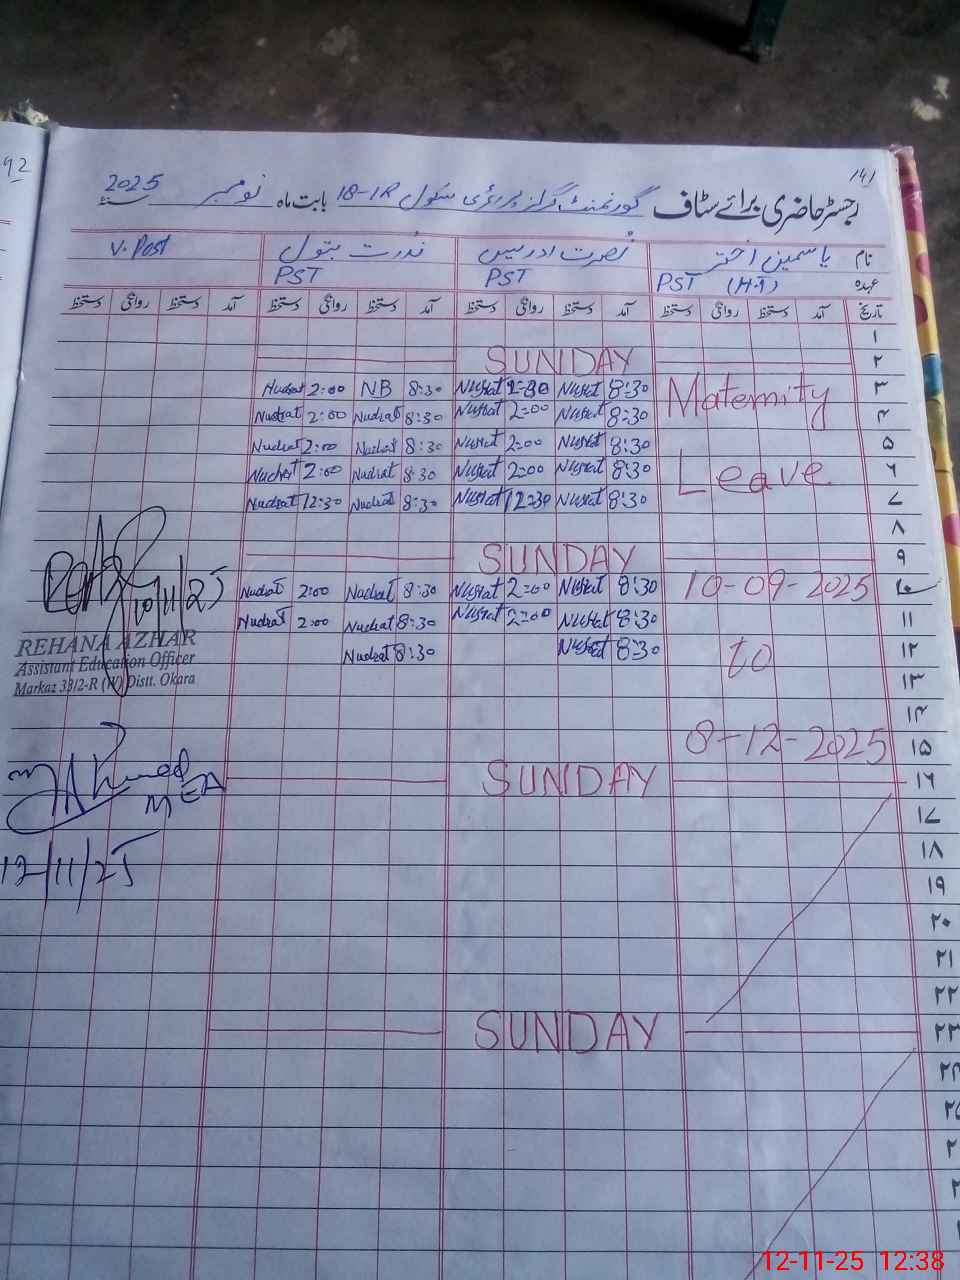 92
141
رجسٹر حاضری برائے سٹاف گورنمنٹ گرلز پرائمری سکول 18-1R بابت ماہ نومبر سنہ 2025
نام یاسمین اختر نصرت ادریس ندرت بتول V. Post
عہدہ PST (H.T) PST PST
تاریخ آمد دستخط روانگی دستخط آمد دستخط روانگی دستخط آمد دستخط روانگی دستخط آمد دستخط روانگی دستخط
۱
۲ SUNDAY
۳ Maternity 8:30 Nusrat 2:00 Nusrat 8:30 NB 2:00 Nudrat
۴ 8:30 Nusrat 2:00 Nusrat 8:30 Nudrat 2:00 Nudrat
۵ 8:30 Nusrat 2:00 Nusrat 8:30 Nudrat 2:00 Nudrat
۶ Leave 8:30 Nusrat 2:00 Nusrat 8:30 Nudrat 2:00 Nudrat
۷ 8:30 Nusrat 12:30 Nusrat 8:30 Nudrat 12:30 Nudrat
۸
۹ SUNDAY
۱۰ 10-09-2025 8:30 Nusrat 2:00 Nusrat 8:30 Nudrat 2:00 Nudrat
۱۱ 8:30 Nusrat 2:00 Nusrat 8:30 Nudrat 2:00 Nudrat
۱۲ to 8:30 Nusrat 8:30 Nudrat
۱۳
۱۴
۱۵ 8-12-2025
۱۶ SUNDAY
۱۷
۱۸
۱۹
۲۰
۲۱
۲۲
۲۳ SUNDAY
۲۴
۲۵
10/11/25
REHANA AZHAR
Assistant Education Officer
Markaz 33/2-R (W) Distt. Okara
MEA
12/11/25
12-11-25 12:38